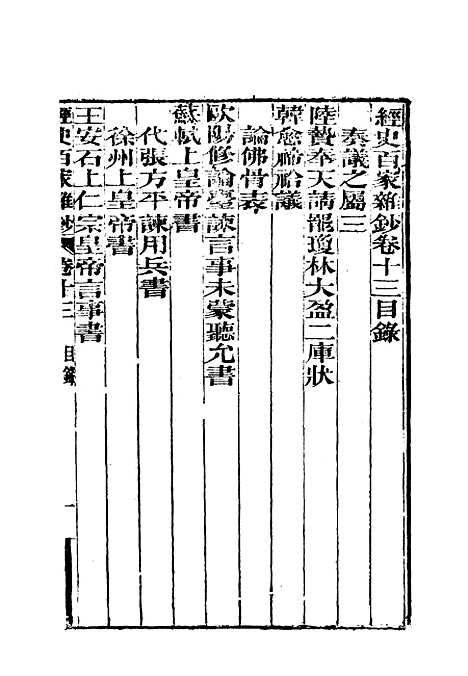 經史百家雜鈔卷十三目錄
奏議之屬三
陸贄奉天請罷瓊林大盈二庫狀
韓愈禘祫議
論佛骨表
歐陽修論臺諫言事未蒙聽允書
蘇軾上皇帝書
代張方平諫用兵書
徐州上皇帝書
王安石上仁宗皇帝言事書
經史百家雜鈔 卷十三 目錄 一